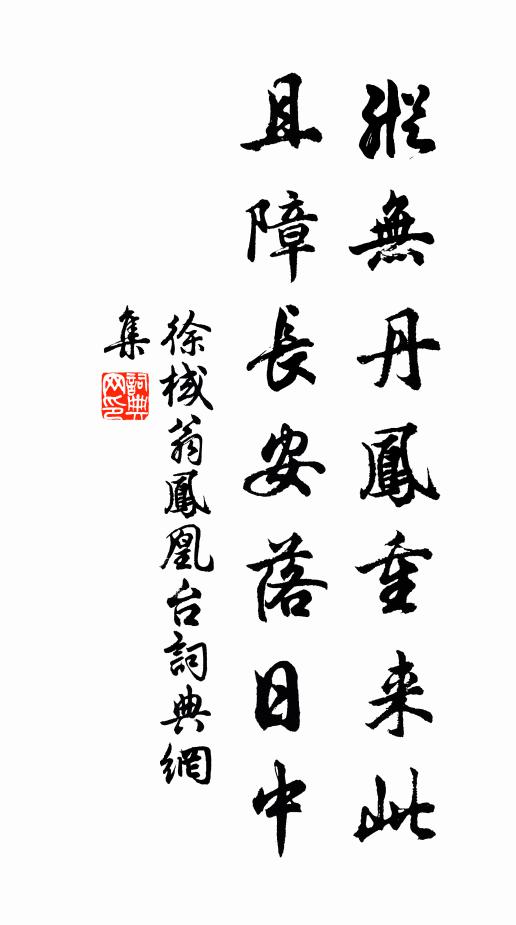 縱無丹鳳重来此
且障長安落日中
徐棫翁鳳凰台詞典網
集
詞典网印